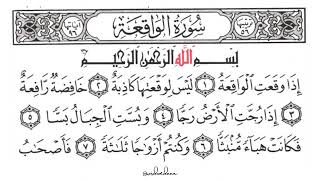 ترتيبها ٥٦ سُورَةُ الوَاقِعَة آياتها ٩٦
بِسْمِ اللَّهِ الرَّحْمَٰنِ الرَّحِيمِ
إِذَا وَقَعَتِ الْوَاقِعَةُ ١ لَيْسَ لِوَقْعَتِهَا كَاذِبَةٌ ٢ خَافِضَةٌ رَّافِعَةٌ
٣ إِذَا رُجَّتِ الْأَرْضُ رَجًّا ٤ وَبُسَّتِ الْجِبَالُ بَسًّا ٥
فَكَانَتْ هَبَاءً مُّنبَثًّا ٦ وَكُنتُمْ أَزْوَاجًا ثَلَاثَةً ٧ فَأَصْحَابُ